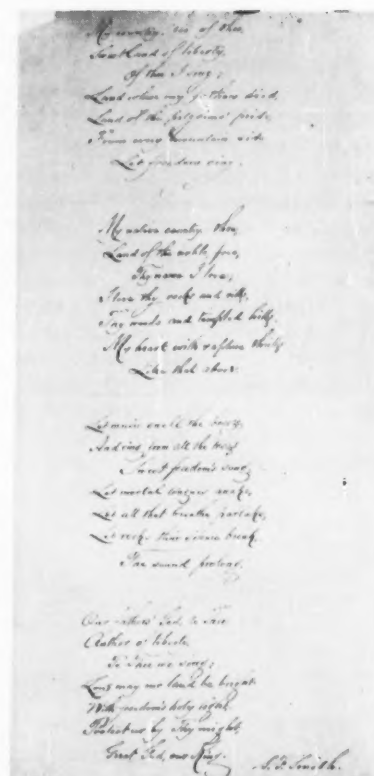 My country, 'tis of thee,
Sweet land of liberty,
Of thee I sing;
Land where my fathers died,
Land of the pilgrims' pride,
From every mountain side
Let freedom ring.
My native country, thee,
Land of the noble, free,
Thy name I love;
I love thy rocks and rills,
Thy woods and templed hills,
My heart with rapture thrills
Like that above.
Let music swell the breeze,
And ring from all the trees
Sweet freedom's song;
Let mortal tongues awake,
Let all that breathe partake,
Let rocks their silence break,
The sound prolong.
Our fathers' God, to Thee
Author of liberty,
To Thee we sing;
Long may our land be bright
With freedom's holy light,
Protect us by Thy might,
Great God, our King.
S. F. Smith.